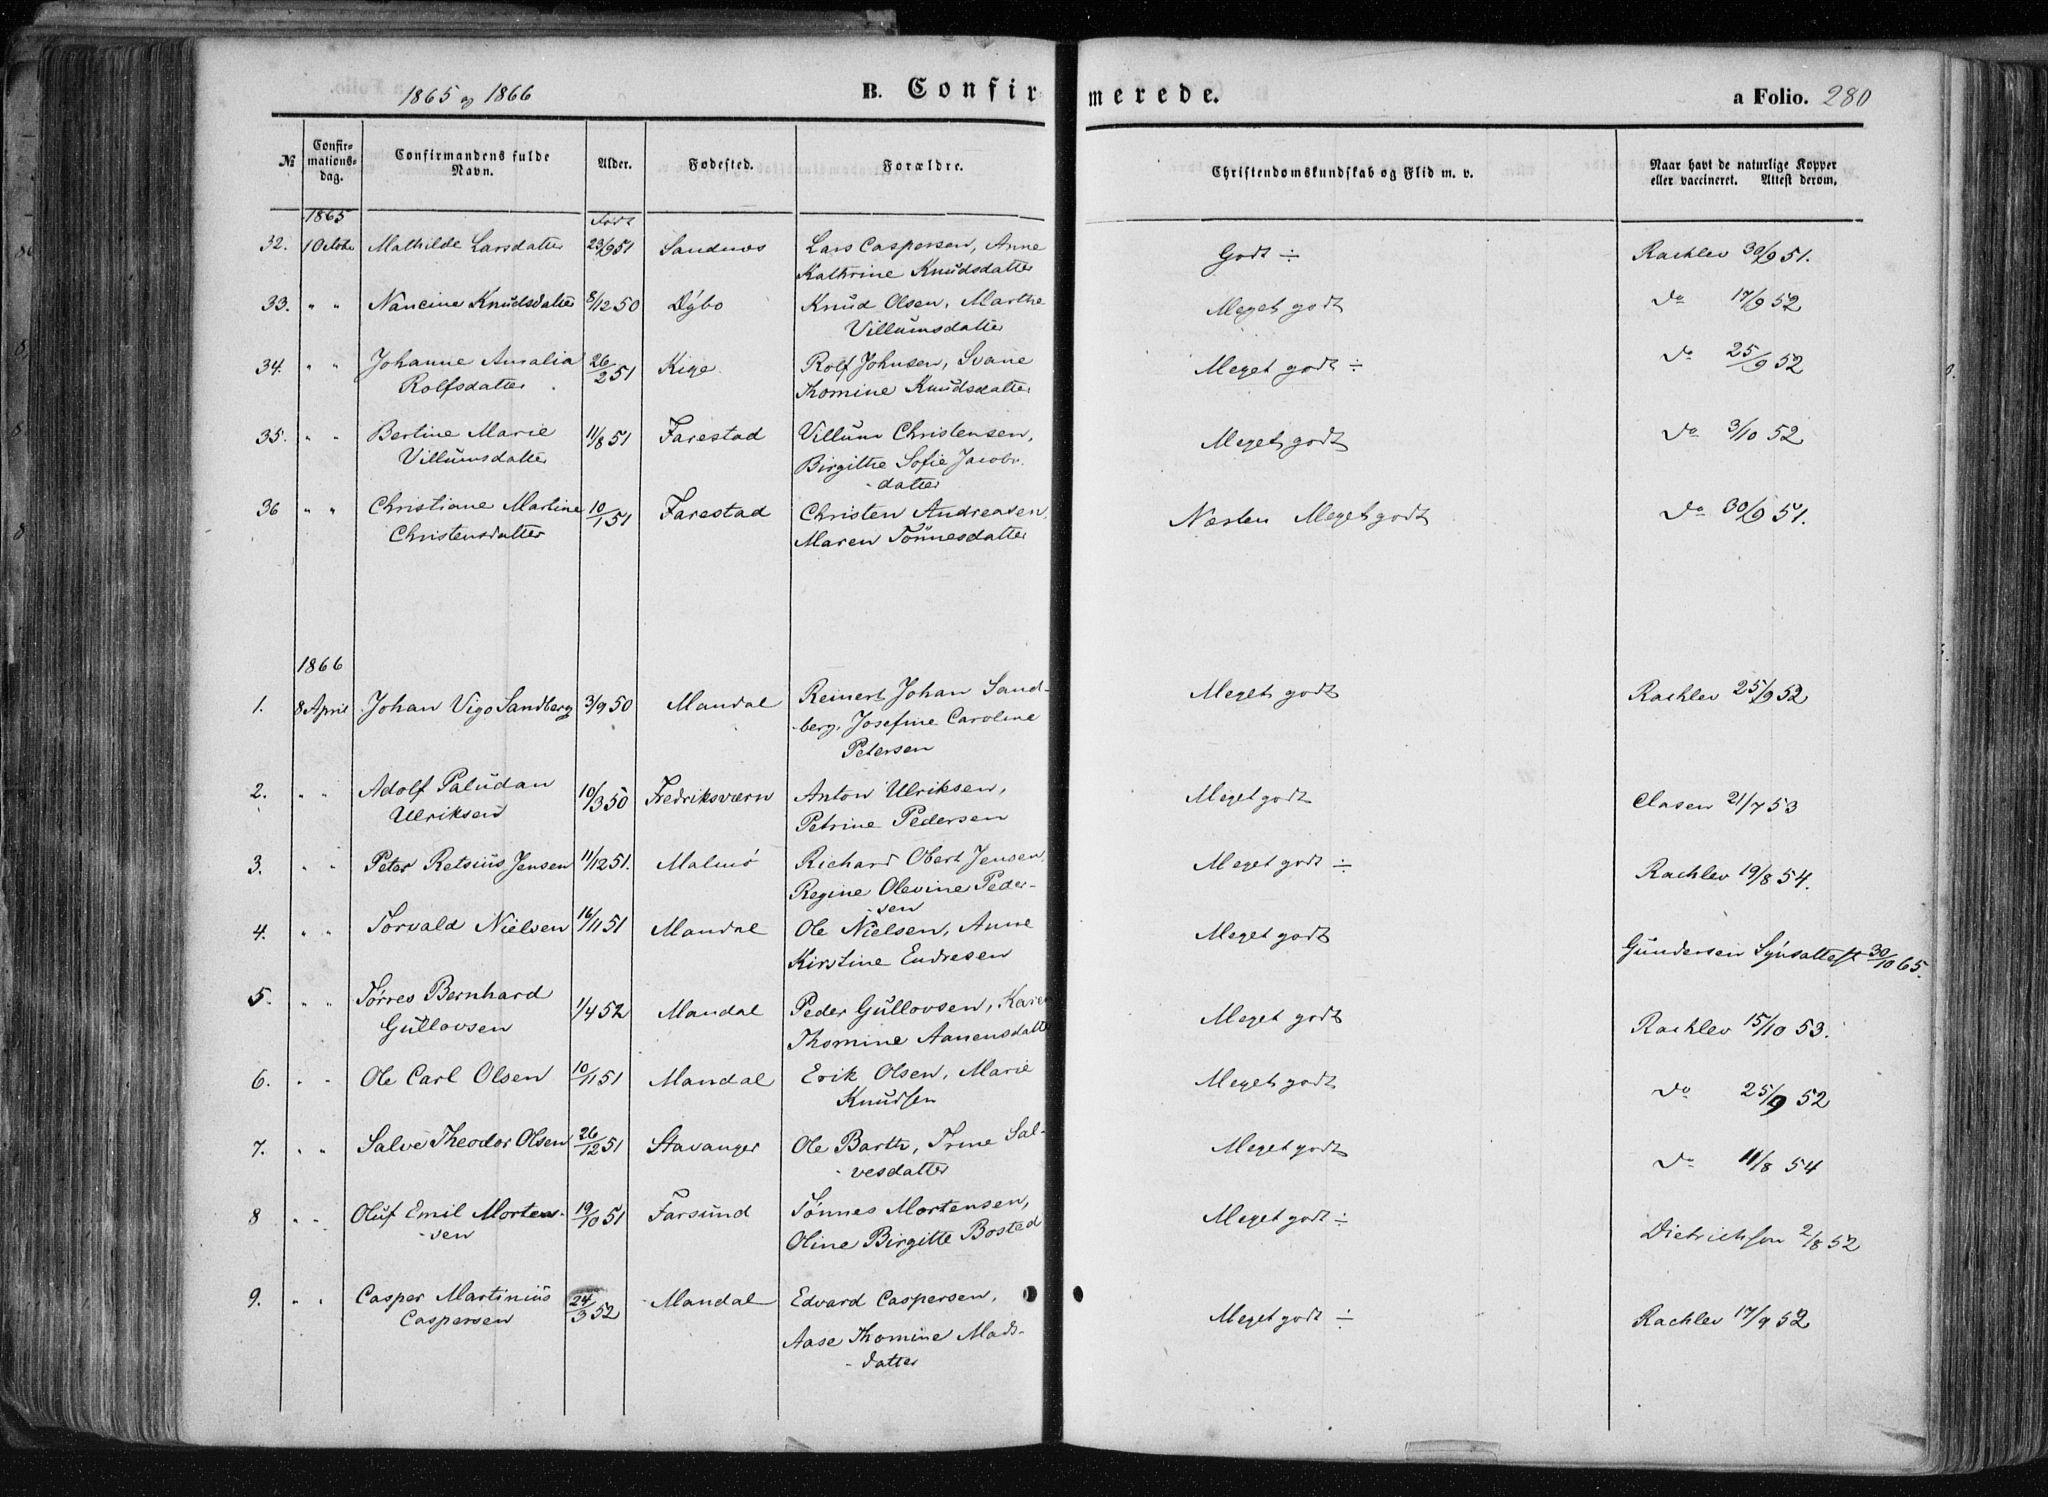 1865 og 1866 B. Confirmerede. a Folio. 280
№ Confirmationsdag. Confirmandens fulde Navn. Alder. Fødested. Forældre. Christendomskundskab og Flid m. v. Naar havt de naturlige Kopper eller vaccineret. Attest derom.
1865 Født
32. 1 Octobr Mathilde Larsdatter 23/9 51 Sandnes Lars Caspersen, Anne Godt ÷ Rachlev 30/9 51.
Kathrine Knudsdatter
33. " " Nancine Knudsdatter 8/12 50 Dybo Knud Olsen, Marthe Meget godt do 17/9 52
Villumsdatter
34. " " Johanne Amalia 26/2 51 Kige Rolf Johnsen, Svane Meget godt ÷ do 25/9 52
Rolfsdatter Thomine Knudsdatter
35. " " Bertine Marie 11/8 51 Farestad Villum Christensen, Meget godt do 3/10 52
Villumsdatter Birgithe Sofie Jacobs-
datter
36 " " Christiane Martine 10/1 51 Farestad Christen Andreasen, Næsten Meget godt do 30/9 51.
Christensdatter Maren Tönnesdatter
1866
1. 8 April Johan Vigo Sandberg 3/9 50 Mandal Reinert Johan Sand- Meget godt Rachlev 25/9 52
berg, Josefine Caroline
Petersen
2. " " Adolf Paludan 10/3 50 Fredriksværn Anton Ulriksen, Meget godt Clasen 21/7 53
Ulriksen Petrine Pedersen
3. " " Peter Retsius Jensen 11/12 51. Malmø Richard Obert Jensen, Meget godt ÷ Rachlev 19/8 54.
Regine Olevine Peder-
sen
4. " " Torvald Nielsen 16/11 51 Mandal Ole Nielsen, Anne Meget godt Gundersen Synsattest 30/10 65.
Kirstine Endresen
5. " " Tørres Bernhard 1/4 52 Mandal Peder Gullovsen, Karen Meget godt Rachlev 15/10 53.
Gullovsen Thomine Aanensdatter
6. " " Ole Carl Olsen 10/11 51 Mandal Erik Olsen, Marie Meget godt do 25/9 52
Knudsen
7. " " Salve Theodor Olsen 26/12 51 Stavanger Ole Barth, Trine Sal- Meget godt do 11/8 54
vesdatter
8 " " Oluf Emil Morten- 19/10 51 Farsund Tønnes Mortensen, Meget godt ÷ Dietrichson 2/8 52
sen Oline Birgitte Bosted
9. " " Casper Martinius 24/3 52 Mandal Edvard Caspersen, Meget godt ÷ Rachlev 17/9 52
Caspersen Aase Thomine Mads-
datter